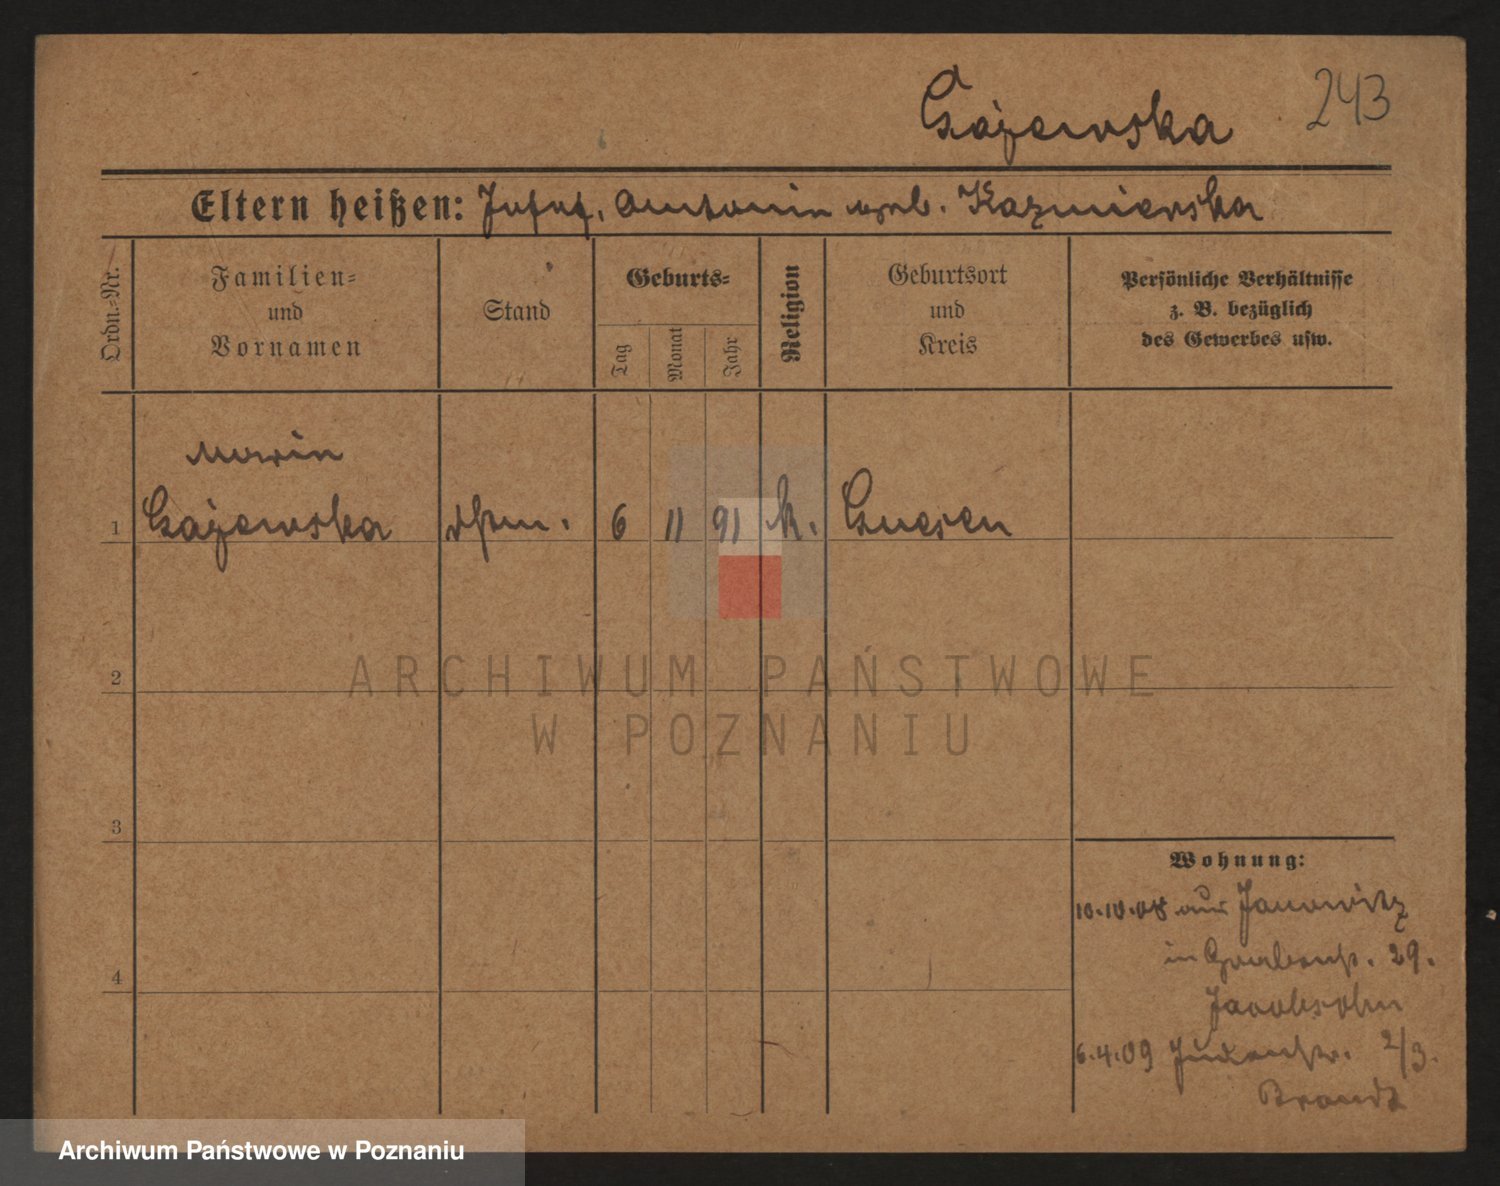 Gajewska 243
Eltern heißen: Josef, Antonin geb. Kazmierska
Ordn.-Nr.
Familien-
und
Vornamen
Stand
Geburts-
Tag
Monat
Jahr
Religion
Geburtsort
und
Kreis
Persönliche Verhältnisse
z. B. bezüglich
des Gewerbes usw.
Marin
1 Gajewska 6 11 91 k. Gnesen
2
ARCHIWUM PAŃSTWOWE
W POZNANIU
3
Wohnung:
10.10.08 aus Janowitz
in Grabenst. 29.
4
Jacobsohn
6.4.09 Judenstr. 2/3.
Brandt
Archiwum Państwowe w Poznaniu